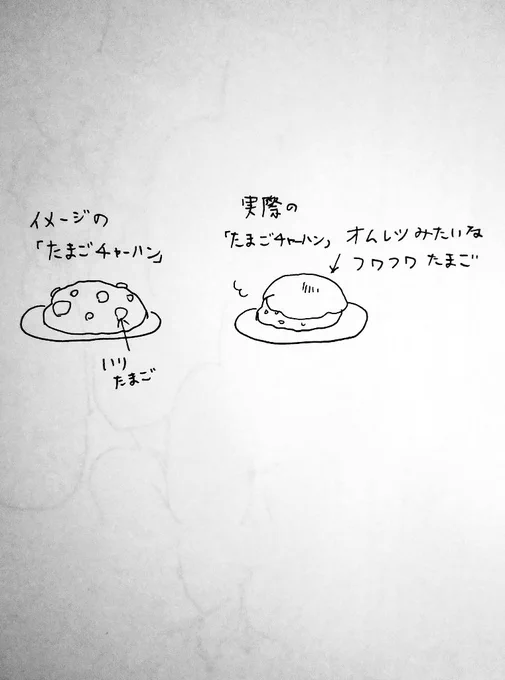 イメージの
「たまごチャーハン」
いり
たまご
実際の
「たまごチャーハン」
オムレツみたいな
フワフワ たまご